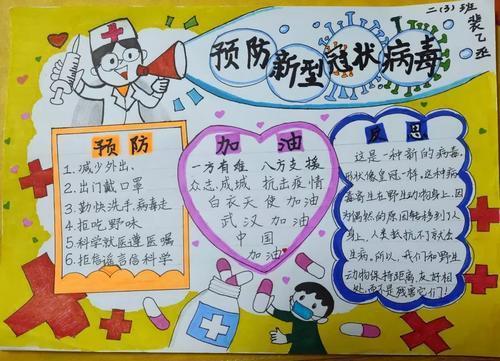 二(3)班
裴乙丞
预防新型冠状病毒
预防
1.减少外出.
2.出门戴口罩
3.勤快洗手病毒走
4.拒吃野味
5.科学就医遵医嘱
6.拒信谣言信科学
加油
一方有难 八方支援
众志成城 抗击疫情
白衣天使加油
武汉加油
中国
加油
反思
这是一种新的病毒,
形状像皇冠一样。这种病
毒寄生在野生动物身上,因
为偶然的原因转移到了人
身上,人类抵抗不了就会
生病。所以,我们和野生
动物保持距离,友好相
处,而不是残害它们!